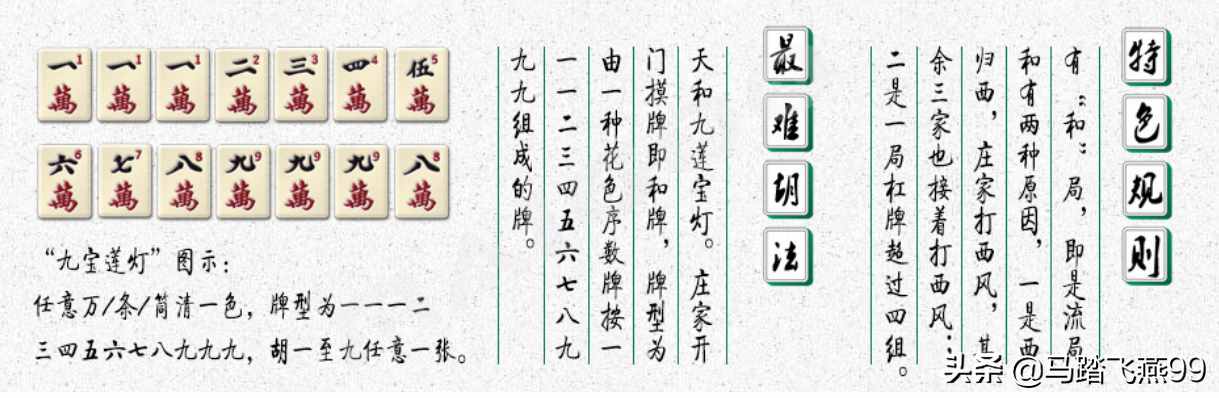 特色规则
有“和”局，即是流局
和有两种原因，一是西
归西，庄家打西风，其
余三家也接着打西风；
二是一局杠牌超过四组。
最难胡法
天和九莲宝灯。庄家开
门摸牌即和牌，牌型为
由一种花色序数牌按一
一一二三四五六七八九
九九组成的牌。
一1萬 一1萬 一1萬 二2萬 三3萬 四4萬 伍5萬
六6萬 七7萬 八8萬 九9萬 九9萬 九9萬 八8萬
“九宝莲灯”图示：
任意万/条/筒清一色，牌型为一一一二
三四五六七八九九九，胡一至九任意一张。
头条 @马踏飞燕99